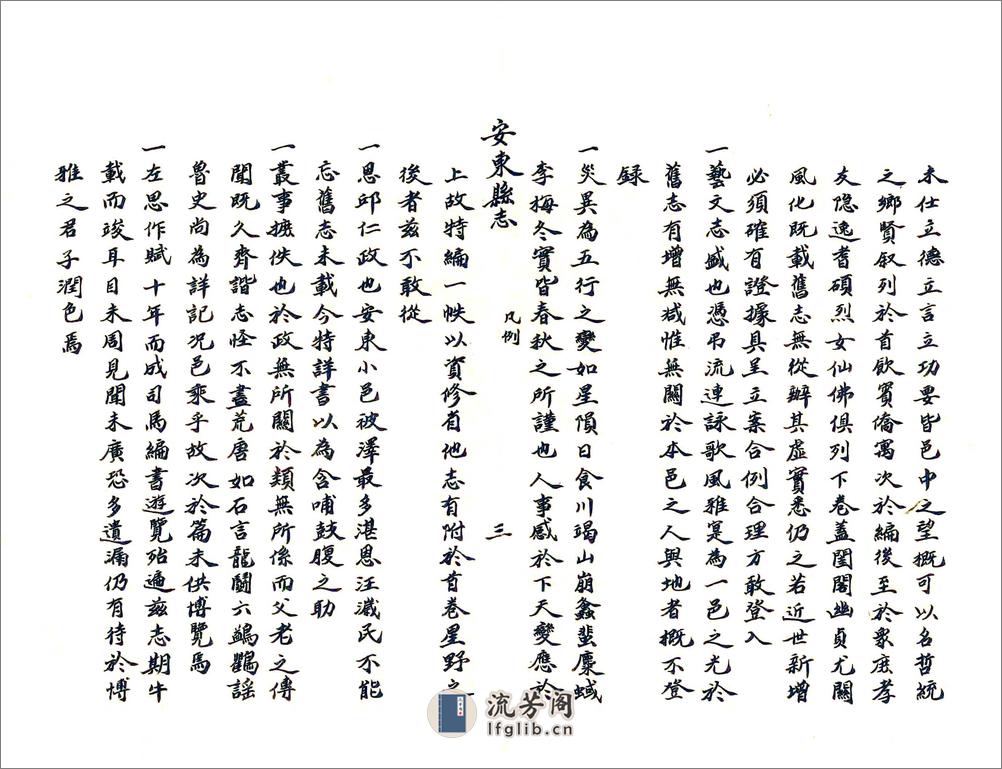 未仕立德立言立功要皆邑中之望概可以名哲統
之鄉賢叙列於首飲賓僑寓次於編後至於衆庶孝
友隐逸耆碩烈女仙佛俱列下卷蓋閨閣幽貞尤關
風化既載舊志無從辦其虛實悉仍之若近世新增
必須確有證據具呈立案合例合理方敢登入
一藝文志盛也憑弔流連詠歌風雅寔為一邑之光於
舊志有增無減惟無關於本邑之人與地者概不登
録
一災異為五行之變如星隕日食川竭山崩螽蜚麋蜮
李梅冬實皆春秋之所謹也人事感於下天變應於
安東縣志
凡例
三
上故特編一帙以資修省他志有附於首卷星野之
後者兹不敢從
一恩邱仁政也安東小邑被澤最多湛恩汪濊民不能
忘舊志未載今特詳書以為含哺鼓腹之助
一叢事摭佚也於政無所關於類無所係而父老之傳
聞既久齊諧志怪不盡荒唐如石言龍鬪六鷁鸜謡
魯史尚為詳記况邑乘乎故次於篇末供博覽焉
一左思作賦十年而成司馬編書遊覽殆遍兹志期牛
載而竣耳目未周見聞未廣恐多遺漏仍有待於博
雅之君子潤色焉
流芳阁
lfglib.cn